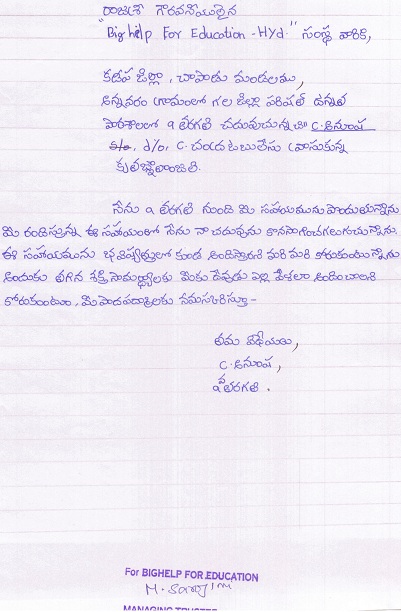 రాజశ్రీ గౌరవనీయులైన
"Big help For Education - Hyd." సంస్థ వారికి,
కడప జిల్లా, చాపాడు మండలము,
అన్నవరం గ్రామంలో గల జిల్లా పరిషత్ ఉన్నత
పాఠశాలలో 9 తరగతి చదువుచున్న చి॥ C. అనూష
S/o, d/o, C. చంద్ర ఓబులేసు వ్రాసుకున్న
కృతజ్ఞతాంజలి.
నేను 9 తరగతి నుండి మీ సహాయమును పొందుతున్నాను
మీ రందిస్తున్న ఈ సహాయంతో నేను నా చదువును కొనసాగించగలుగుచున్నాను.
ఈ సహాయమును భవిష్యత్తులో కూడ అందిస్తారని మరి మరి కోరుకుంటున్నాను
అందుకు తగిన శక్తి సామర్థ్యాలకు మీకు దేవుడు ఎల్ల వేళలా అందించాలని
కోరుకుంటూ, మీ పాదపద్మాలకు నమస్కరిస్తూ -
తమ విధేయులు,
C. అనూష,
9వ తరగతి.
For BIGHELP FOR EDUCATION
MANAGING TRUSTEE